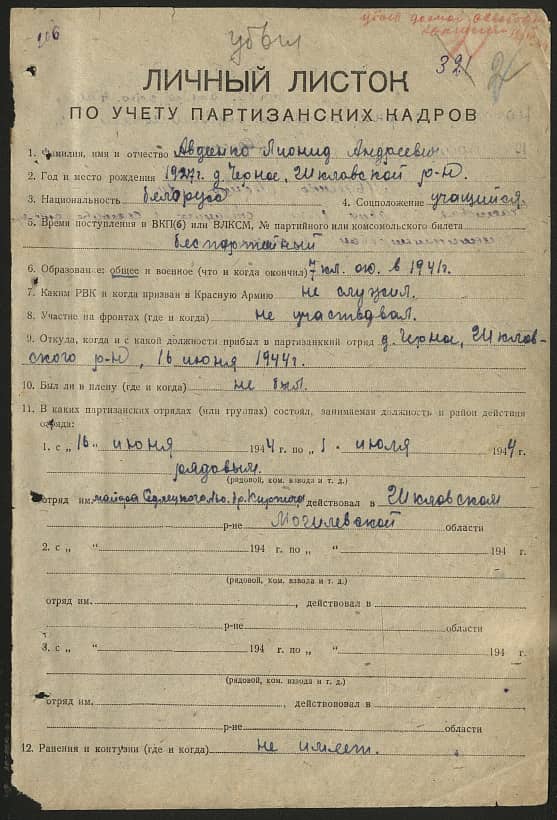 убыл
321
ЛИЧНЫЙ ЛИСТОК
ПО УЧЕТУ ПАРТИЗАНСКИХ КАДРОВ
1. Фамилия, имя и отчество Авдеенко Лионид Андреевич
2. Год и место рождения 1927г. д. Черное, Шкловской р-н.
3. Национальность белорус 4. Соцположение учащийся.
5. Время поступления в ВКП(б) или ВЛКСМ, № партийного или комсомольского билета
беспартейный
6. Образование: общее и военное (что и когда окончил) 7 кл. ок. в 1941г.
7. Каким РВК и когда призван в Красную Армию не служил.
8. Участие на фронтах (где и когда) не участвовал.
9. Откуда, когда и с какой должности прибыл в партизанский отряд д. Черное, Шклов-
ского р-н, 16 июня 1944г.
10. Был ли в плену (где и когда) не был.
11. В каких партизанских отрядах (или группах) состоял, занимаемая должность и район действия
отряда:
1. с „16" июня 1944 г. по „1" июля 1944 г.
рядовым.
(рядовой, ком. взвода и т. д.)
отряд им. майора действовал в Шкловском
р-не Могилевской области
2. с „ " 194 г. по „ " 194 г.
(рядовой, ком. взвода и т. д.)
отряд им. , действовал в
р-не области
3. с „ " 194 г. по „ " 194 г.
(рядовой, ком. взвода и т. д.)
отряд им. , действовал в
р-не области
12. Ранения и контузии (где и когда) не имеет.